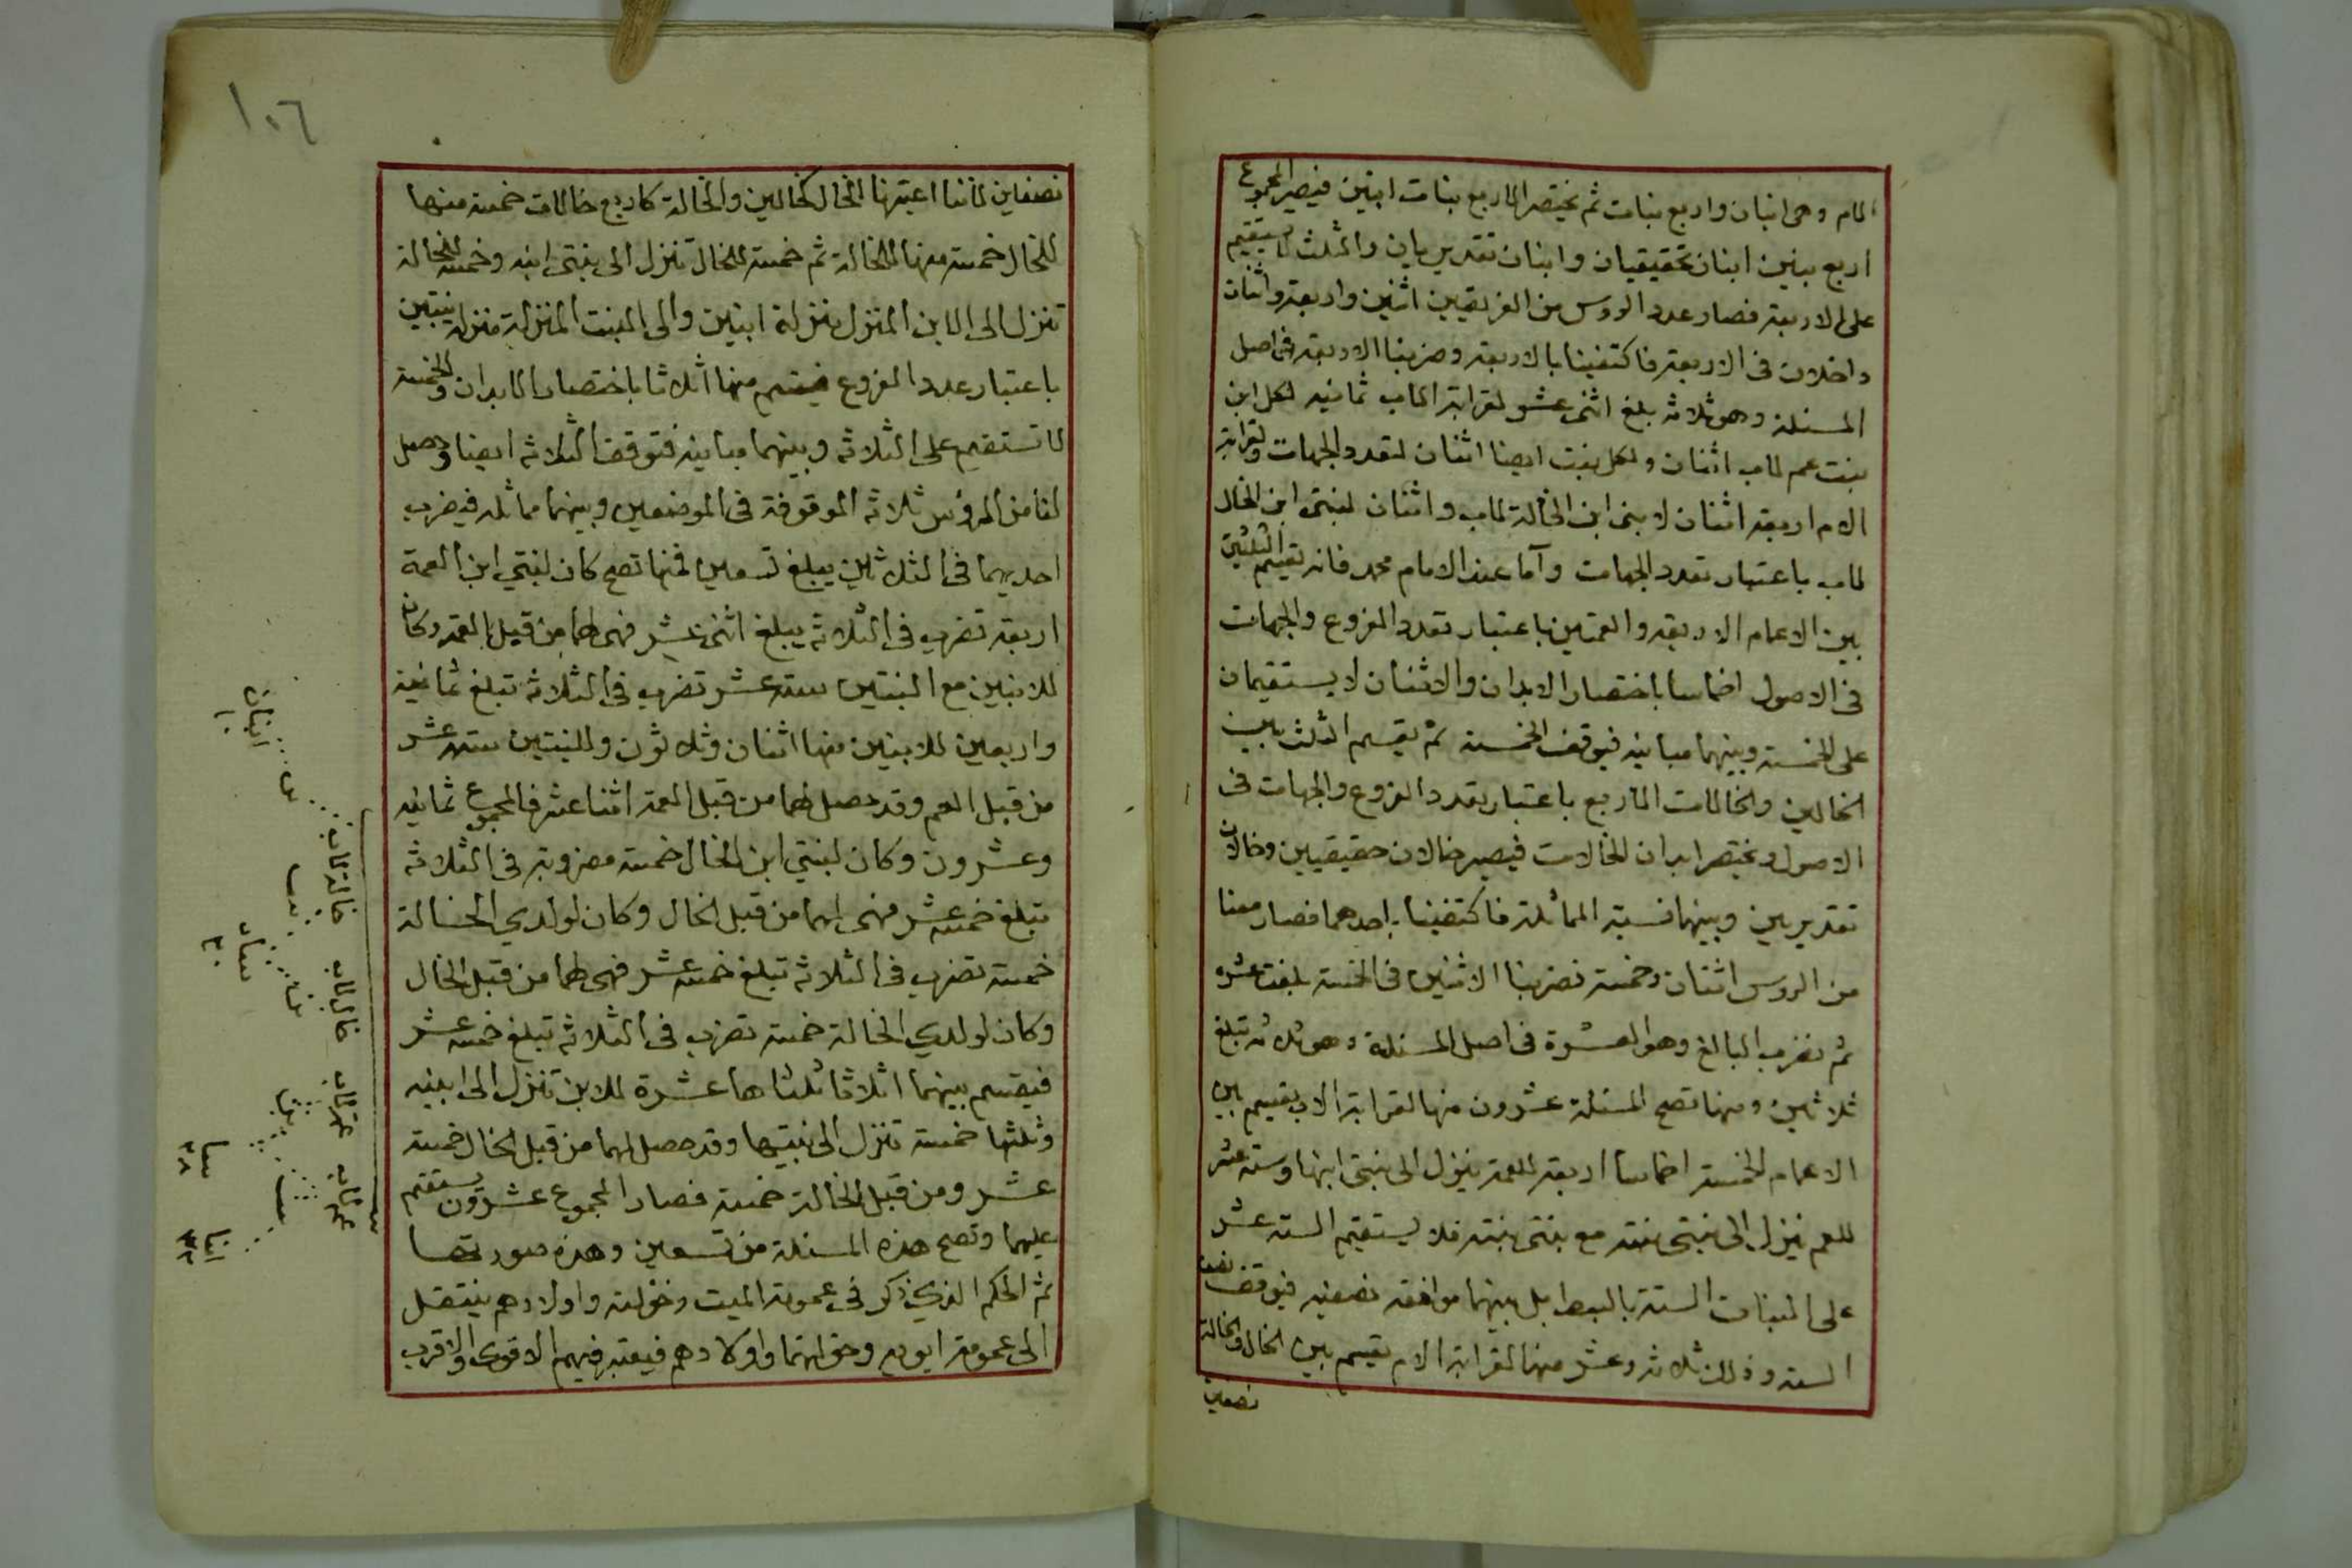 الام وهى ابنان واربع بنات ثم يختصر الاربع بنات ابنين فيصير المجموع
اربع بنين ابنان تحقيقيان وابنان تقديريان والثلث لا يستقيم
على الاربعة فصار عدد الروس من الفريقين اثنين واربعة واثنان
داخلان فى الاربعة فاكتفينا بالاربعة وضربنا الاربعة فى اصل
المسئلة وهو ثلاثة بلغ اثنى عشر لقرابة الاب ثمانية لكل ابن
بنت عم لاب اثنان ولكل بنت ايضا اثنان لتعدد الجهات ولقرابة
الام اربعة اثنان لابنى ابن الخالة لاب واثنان لبنتى ابن الخال
لاب باعتبار تعدد الجهات وآما عند الامام محمد فانه يقسم الثلثين
بين الاعمام الاربعة والعمتين باعتبار تعدد الفروع والجهات
فى الاصول اخماسا باختصار الابدان والاثنان لا يستقيمان
على الخمسة وبينهما مباينة فيوقف الخمسة ثم يقسم الثلث بين
الخالين والخالات الاربع باعتبار تعدد الفروع والجهات فى
الاصول ويختصر ابدان الخالات فيصير خالان حقيقيين وخالان
تقديريين وبينهما نسبة المماثلة فاكتفينا باحدهما فصار معنا
من الروس اثنان وخمسة فضربنا الاثنين فى الخمسة بلغت عشرة
ثم نضرب البالغ وهو العشرة فى اصل المسئلة وهو ثلاثة تبلغ
ثلاثين ومنها تصح المسئلة عشرون منها لقرابة الاب يقسم بين
الاعمام الخمسة اخماسا اربعة للعمة ينزل الى بنتى ابنها وستة عشر
للعم ينزل الى بنتى بنته مع بنتى بنته فلا يستقيم الستة عشر
على البنات الستة بالبسط بل بينهما موافقة نصفية فيوقف نصف
الستة وذلك ثلاثة وعشر منها لقرابة الام يقسم بين الخال والخالة
نصفين
١٠٦
نصفاين لاننا اعتبرنا الخال كخالين والخالة كاربع خالات خمسة منها
للخال خمسة منها للخالة ثم خمسة للخال تنزل الى بنتى ابنه وخمسة للخالة
تنزل الى الابن المنزل بمنزلة ابنين والى البنت المنزلة منزلة بنتين
باعتبار عدد الفروع فيقسم منها اثلاثا باختصار الابدان والخمسة
لا تستقيم على الثلاثة وبينهما مباينة فتوقف الثلاثة ايضا وحصل
لنا من الرؤس ثلاثة الموقوفة فى الموضعين وبينهما مماثلة فيضرب
احديهما فى الثلاثين يبلغ تسعين فمنها تصح كان لبنتي ابن العمة
اربعة تضرب فى الثلاثة يبلغ اثنى عشر فهى لهما من قبل العمة وكان
للابنين مع البنتين ستة عشر تضرب فى الثلاثة تبلغ ثمانية
واربعين للابنين منها اثنان وثلاثون وللبنتين ستة عشر
من قبل العم وقد حصل لهما من قبل العمة اثنا عشر فالمجموع ثمانية
وعشرون وكان لبنتي ابن الخال خمسة مضروبة فى الثلاثة
تبلغ خمسة عشر فهى لهما من قبل الخال وكان لولدي الخالة
خمسة تضرب فى الثلاثة تبلغ خمسة عشر فهى لهما من قبل الخال
وكان لولدي الخالة خمسة تضرب فى الثلاثة تبلغ خمسة عشر
فيقسم بينهما اثلاثا ثلثاها عشرة للابن تنزل الى ابنيه
وثلثها خمسة تنزل الى بنتيها وقد حصل لهما من قبل الخال خمسة
عشر ومن قبل الخالة خمسة فصار المجموع عشرون يستقيم
عليهما وتصح هذه المسئلة من تسعين وهذه صورتها
ثم الحكم الذي ذكر فى عمومة الميت وخولته واولادهم ينتقل
الى عمومة ابويه وخولتهما واولادهم فيعتبر فيهم الاقوى والاقرب
عم لاب عمة لاب خال لاب خالة لاب
بنت ابن بنت ابن
ابنان
١٠
٢٠
٢٨
٣٢